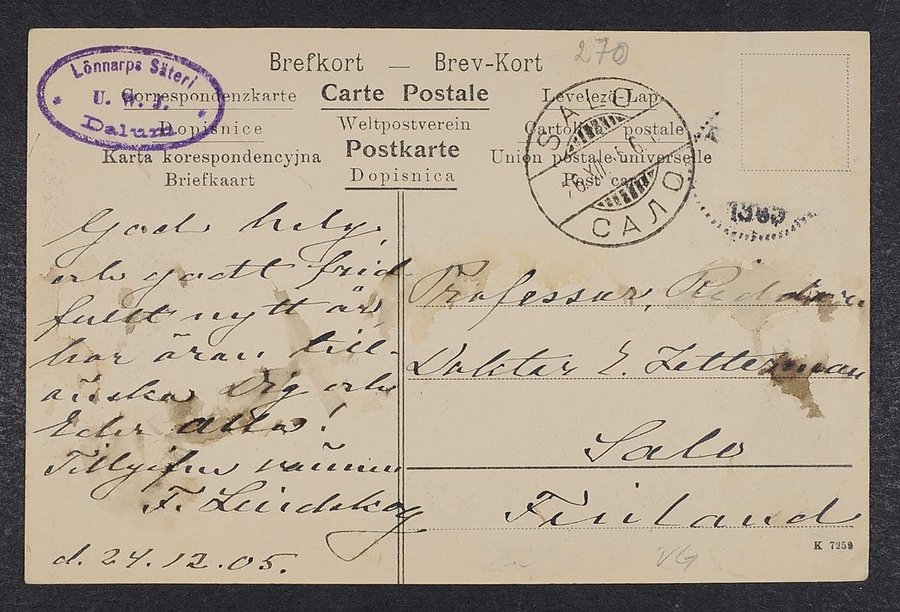 Lönnarps Säteri
U. W. J.
Dalum
270
Brefkort — Brev-Kort
Correspondenzkarte Carte Postale Levelező Lap
Dopisnice Weltpostverein Cartolina postale
Karta korespondencyjna Postkarte Union postale universelle
Briefkaart Dopisnica Post card
SALO
САЛО
1905
God helg
och godt frid-
fullt nytt år
har äran till-
önska Dig och
Eder alla!
Tillgifne vännen
F. Lindskog
d. 24.12.05.
Professor, Riddaren
Doktor E. Zetterman
Salo
Finland
K 7259
VG